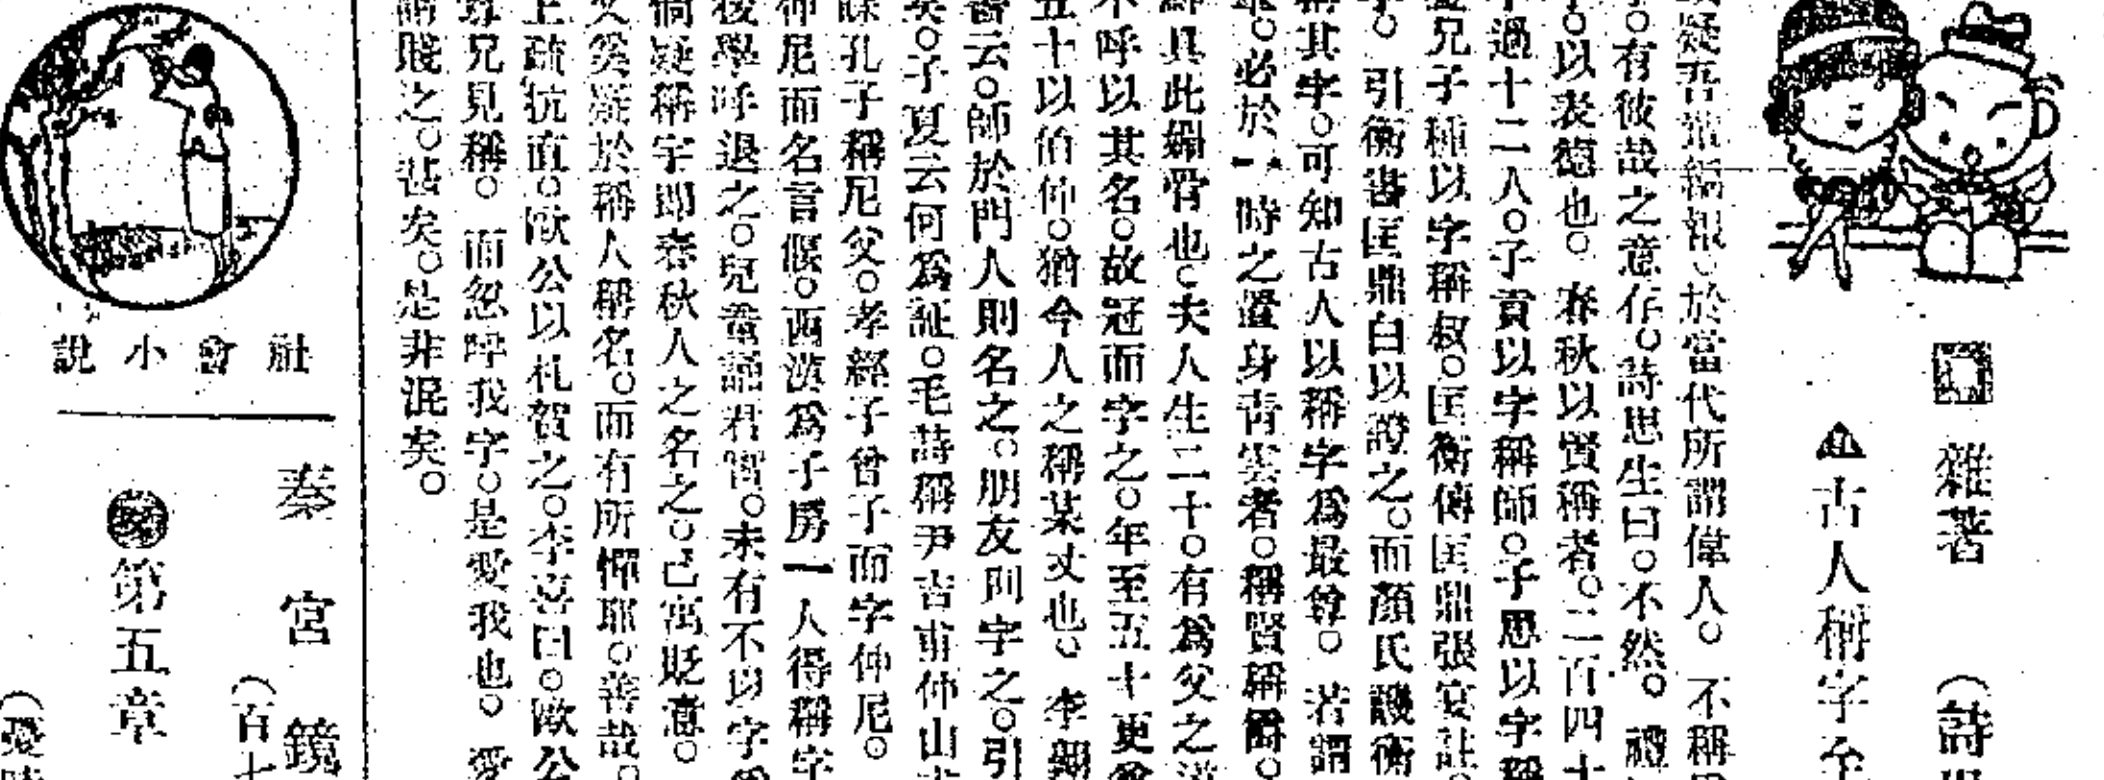 雜著 （詩
古人稱字
於當代所謂偉人。 不稱
有彼哉之意存。詩思生曰。不然。 禮
以表德也。 春秋以賢稱者。二百四十
過十二人。子貢以字稱師。子思以字稱
兄子種以字稱叔。匡衡傳匡鼎張晏註。
引衡書匡鼎白以證之。而顏氏譏衡
稱其字。可知古人以稱字爲最尊。 若謂
必於一時之置身靑雲者。稱賢稱爵。
具此媚骨也。夫人生二十。有爲父之
不呼以其名。故冠而字之。年至五十更
五十以伯仲。猶今人之稱某丈也。 李翱
書云。師於門人則名之。朋友則字之。引
矣。子夏云何爲証。毛詩稱尹吉甫仲山
孔子稱尼父。孝經子曾子而字仲尼。
仲尼而名言偃。西漢爲子房一人得稱字
後學呼退之。兒童誦君實。未有不以字
倘疑稱字卽春秋人之名之。已寓貶意。
父奚疑於稱人稱名。而有所憚耶。善哉。
上疏抗直。歐公以札賀之。李喜曰。歐公
尊兄見稱。 而忽呼我字。是愛我也。 愛
謂賤之。甚矣。是非混矣。
社會小說
秦宮鏡
（百七
第五章